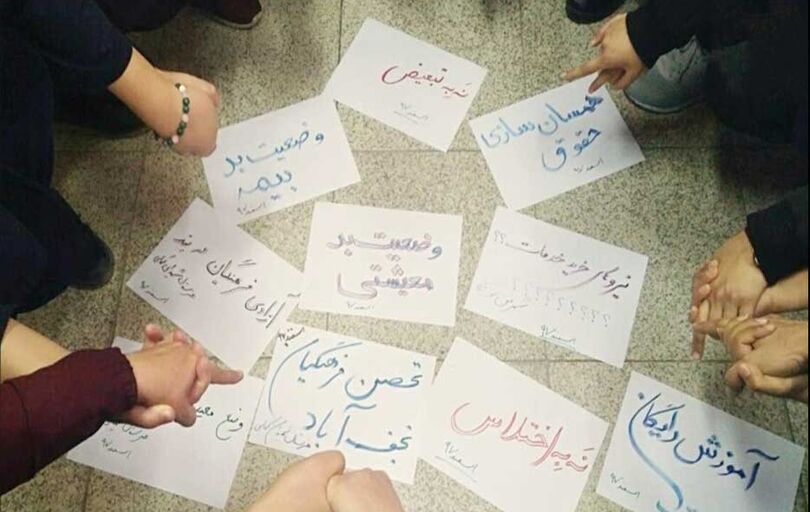 نه به تبعیض
اسفند ۹۷
همسان سازی
حقوق
اسفند ۹۷
وضعیت بد
بیمه
اسفند ۹۷
نیروهای خرید خدمات؟؟
؟؟؟؟؟؟؟؟؟
اسفند ۹۷
وضعیت بد
معیشتی
اسفند ۹۷
آزادی فرهنگیان دربند
اسفند ۹۷
آموزش رایگان
اسفند ۹۷
نه به اختلاس
اسفند ۹۷
اسفند ۹۷
تحصن فرهنگیان
نجف آباد
وضع
اسفند ۹۷